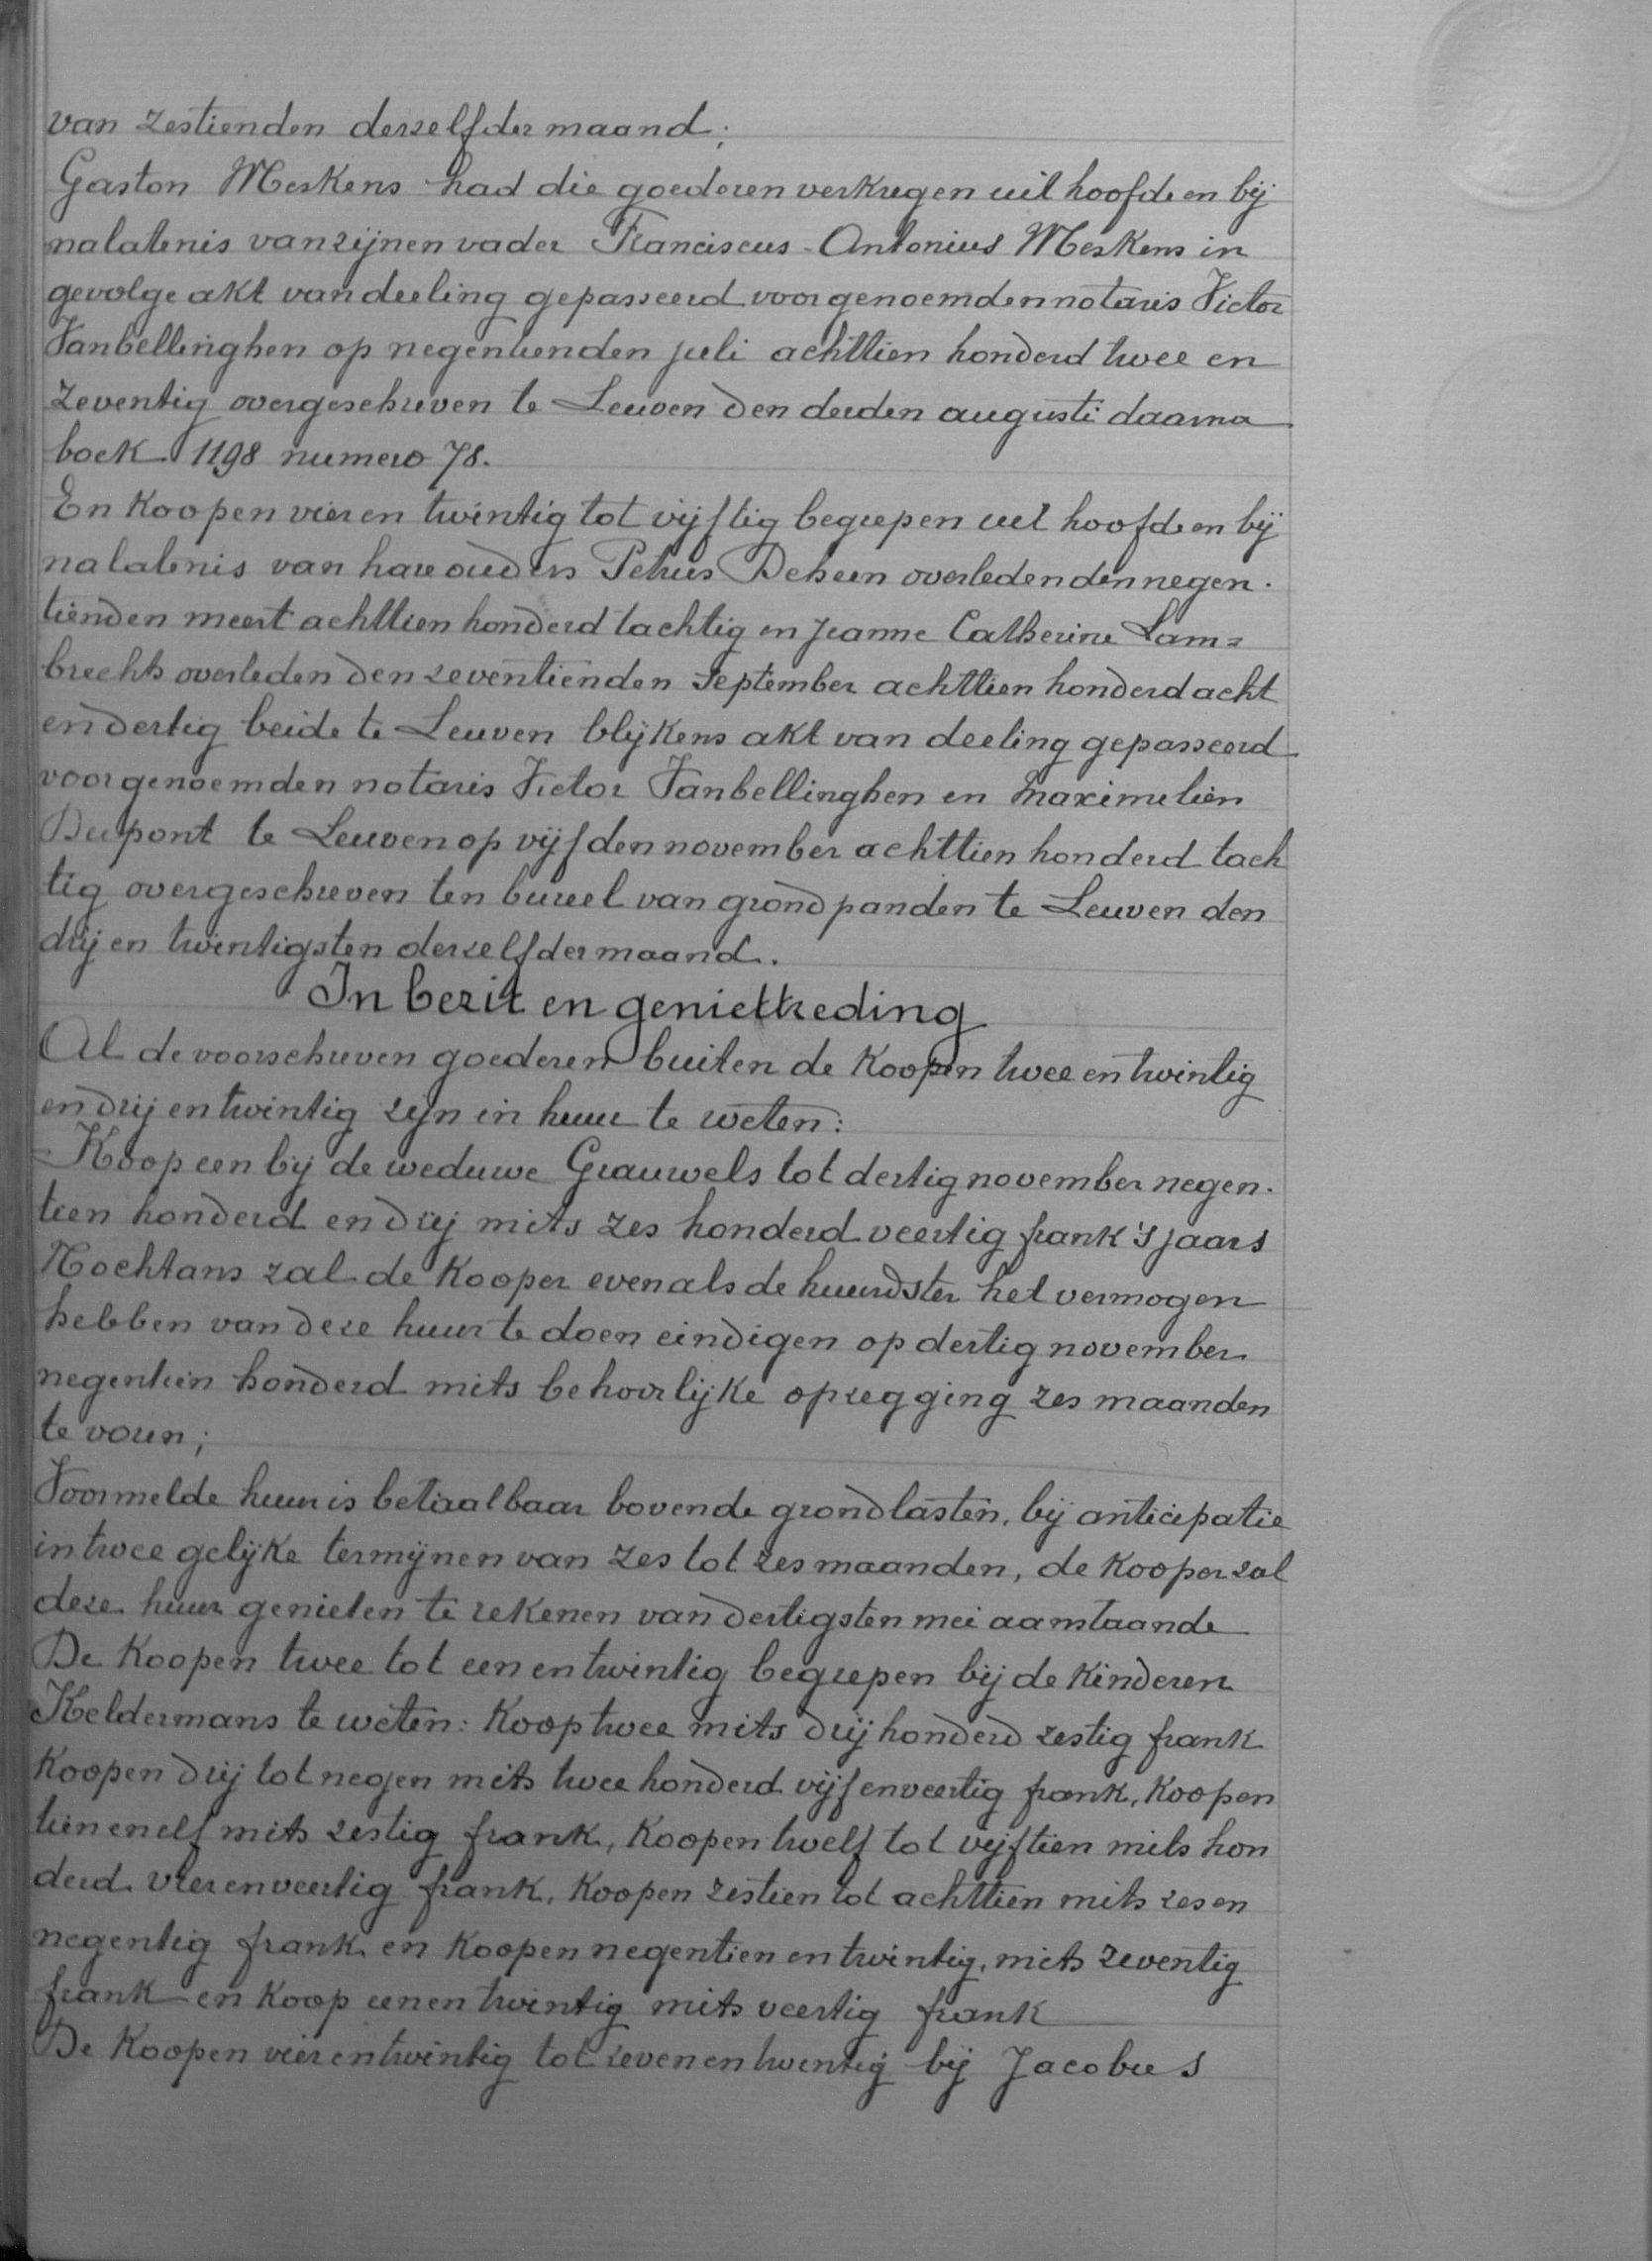 van zestienden derzelfder maand;
Gaston Meskens had die goederen verkregen uit hoofde en bij
nalatenis van zijnen vader Franciscus-Antonius Meskens in
gevolge akt van deeling gepasseerd voor genoemden notaris Victor
Vanbellinghen op negentienden juli achttien honderd twee en
zeventig overgeschreven te Leuven den derden augusti daarna
boek 1198 numero 78.
En Koopen vier en twintig tot vijftig begrepen uit hoofde en bij
nalatenis van hare ouders Petrus Deheen overleden den negen-
tienden meert achttien honderd tachtig en Jeanne Catherine Lam=
brechts overleden den zeventienden September achttien honderd acht
en dertig beide te Leuven blijkens akt van deeling gepasseerd
voor genoemden notaris Victor Vanbellinghen en Maximilien
Dupont te Leuven op vijfden november achttien honderd tach
tig overgeschreven ten bureel van grondpanden te Leuven den
drij en twintigsten derzelfder maand.
In bezit en geniettreding
Al de voorschreven goederen buiten de Koopen twee en twintig
en drij en twintig zijn in huur te weten:
Koop een bij de weduwe Grauwels tot dertig november negen-
tien honderd en drij mits zes honderd veertig frank 's jaars
Nochtans zal de Kooper evenals de huurdster het vermogen
hebben van deze huur te doen eindigen op dertig november
negentien honderd mits behoorlijke opzegging zes maanden
te voren;
Voormelde huur is betaalbaar boven de grondlasten, bij anticipatie
in twee gelijke termijnen van zes tot zes maanden, de Kooper zal
deze huur genieten te rekenen van dertigsten mei aanstaande
De Koopen twee tot een en twintig begrepen bij de Kinderen
Keldermans te weten: Koop twee mits drij honderd zestig frank
Koopen drij tot negen mits twee honderd vijf en veertig frank, Koopen
tien en elf mits zestig frank, Koopen twelf tot vijftien mits hon
derd vier en veertig frank, Koopen zestien tot achttien mits zes en
negentig frank en Koopen negentien en twintig, mits zeventig
frank en Koop een en twintig mits veertig frank
De Koopen vier en twintig tot zeven en twintig bij Jacobus